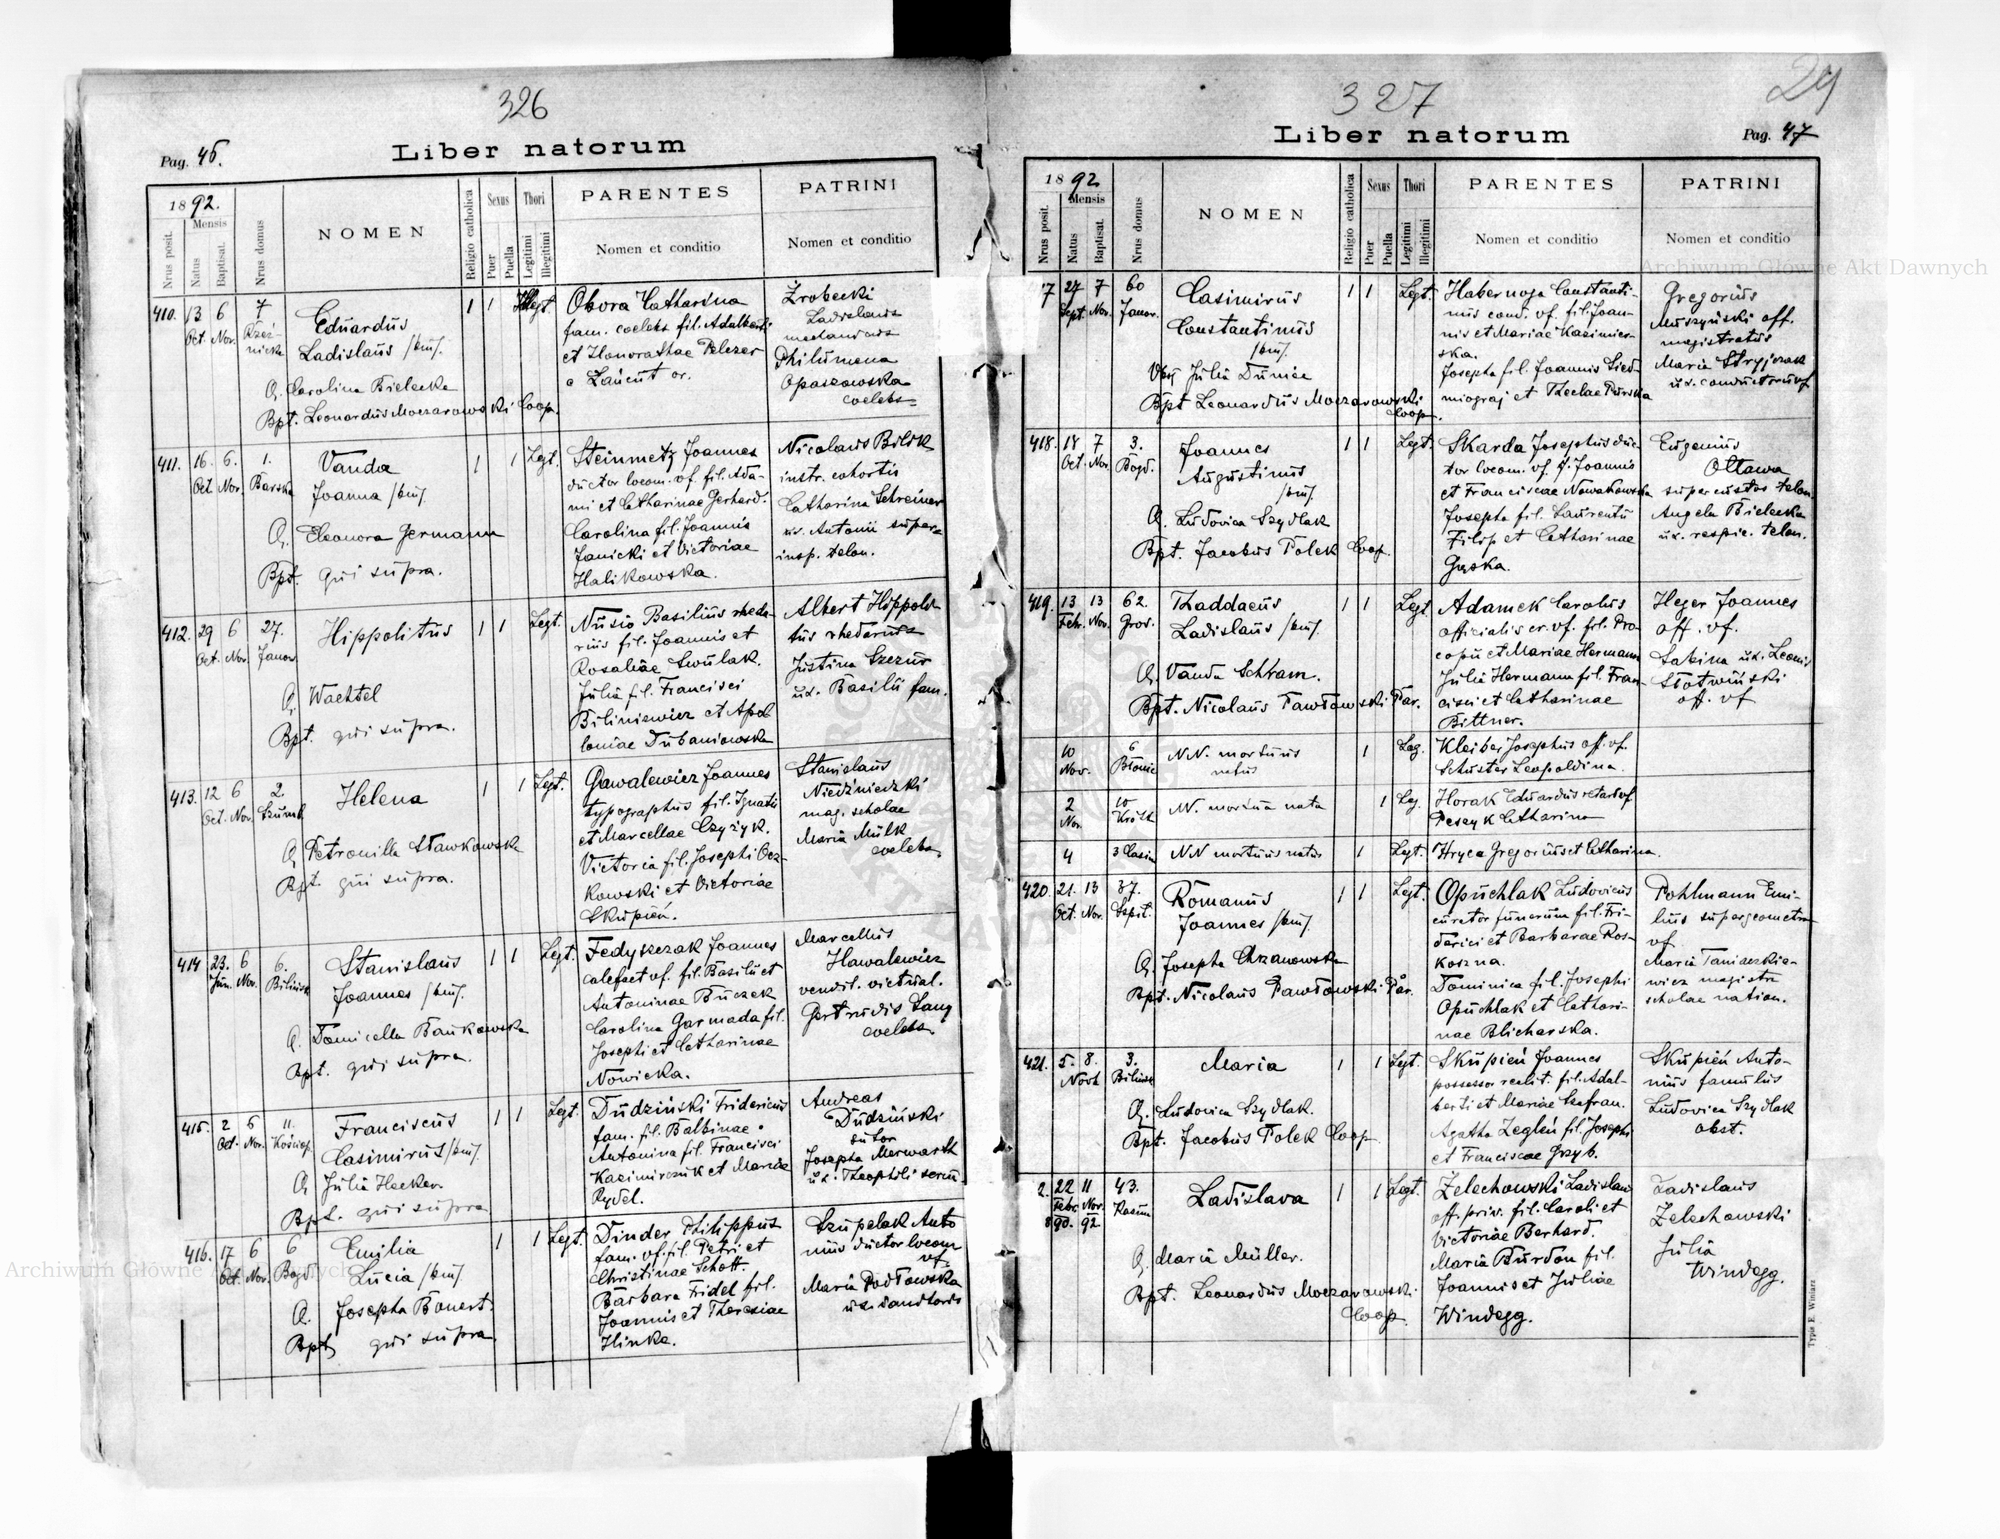 326
Pag. 46.
Liber natorum
1892.
Nrus posit.
Mensis
Natus
Baptisat.
Nrus domus
NOMEN
Religio catholica
Sexus
Puer
Puella
Thori
Legitimi
Illegitimi
PARENTES
Nomen et conditio
PATRINI
Nomen et conditio
410. 13 6 7
Oct. Nov.
Eduardus
Ladislaus /bin/.
O. Carolina Bielecka
Bpt. Leonardus Moczarowski Coop.
1 1 Illegt.
Obora Catharina
fam. coelebs fil. Adalberti
et Honorathae Pelczer
e Łańcut or.
Żrobecki
Ladislaus
Philomena
Opaszowska
coelebs
411. 16. 6. 1.
Oct. Nov. Barska
Vanda
Joanna /bin/.
O. Eleonora Germann
Bpt. qui supra.
1 1 Legt.
Steinmetz Joannes
ductor locom. vf. fil. Ada-
mi et Catharinae Gerhard.
Carolina fil. Joannis
Janicki et Victoriae
Halikowska.
Nicolaus Bilik
instr. cohortis
Catharina Schreiner
ux. Antonii super-
insp. telon.
412. 29 6 27.
Oct. Nov. Janow
Hippolitus
O. Wachtel
Bpt. qui supra.
1 1 Legt.
Nusio Basilius rheda-
rius fil. Joannis et
Rosaliae Swulak.
Julia fil. Francisci
Biliniewicz et Apol-
loniae Dubaniowska
Albert Hippoli-
tus rhedarius
Justina Szczur
ux. Basilii fam.
413. 12 6 2
Oct. Nov. Szumł.
Helena
O. Petronilla Sławkowska
Bpt. qui supra.
1 1 Legt.
Gawalewicz Joannes
typographus fil. Ignatii
et Marcellae Czyżyk.
Victoria fil. Josephi Occ-
kowski et Victoriae
Skupień.
Stanislaus
Niedzwiedzki
mag. scholae
Maria Mulk
coelebs.
414 23. 6 6.
Jun. Nov. Bilińsk
Stanislaus
Joannes /bin/.
O. Domicella Bańkowska
Bpt. qui supra.
1 1 Legt.
Fedyszczak Joannes
calefact vf. fil. Basilii et
Antoninae Buczek
Carolina Garmada fil.
Josephi et Catharinae
Nowicka.
Marcellus
Hawalewicz
vendit. victual.
Gertrudis Lang
coelebs.
415. 2 6 11.
Oct. Nov.
Franciscus
Casimirus /bin/.
O. Julia Hecker
Bpt. qui supra
1 1 Legt.
Dudziński Fridericus
fam. fil. Balbinae.
Antonina fil. Francisci
Kazimirczuk et Mariae
Rydel.
Andreas
Dudziński
sutor
Josepha Merwarth
ux. Theophili
416. 17 6 6
Oct. Nov. Bogd.
Emilia
Lucia /bin/.
O. Josepha Bonert.
Bpt. qui supra
1 1 Legt.
Dinder Philippus
fam. vf. fil. Petri et
Christinae Schott.
Barbara Fridel fil.
Joannis et Theresiae
Hinka.
Szupelak Anto
nius ductor locom
vf.
Maria Podłowska
327
29
Liber natorum
Pag. 47
1892
Nrus posit.
Mensis
Natus
Baptisat.
Nrus domus
NOMEN
Religio catholica
Sexus
Puer
Puella
Thori
Legitimi
Illegitimi
PARENTES
Nomen et conditio
PATRINI
Nomen et conditio
17 27 7 60
Sept. Nov. Janow.
Casimirus
Constantinus
/bin/.
Obs Julia Dumie
Bpt Leonardus Moczarowski
Coop.
1 1 Legt.
Habernoga Constanti-
nus cond. vf. fil. Joan-
nis et Mariae Kazimier-
ska.
Josepha fil. Joannis Sied-
miograj et Theclae Purska
Gregorius
Muszyński off.
magistratus
Maria Stryjczak
ux. conductoris vf.
418. 18 7 3.
Oct. Nov. Bogd.
Joannes
Augustinus
/bin/.
O. Ludovica Szydlak
Bpt. Jacobus Polek Coop.
1 1 Legt.
Skarda Josephus duc-
tor locom. vf. f. Joannis
et Franciscae Nowakowska
Josepha fil. Laurentii
Filip et Catharinae
Gąska.
Eugenius
Ottawa
supercustos telon.
Angela Bielecka
ux. respic. telon.
419. 13 13 62.
Febr. Nov. Grod.
Thaddaeus
Ladislaus /bin/.
O. Vanda Schram.
Bpt. Nicolaus Pawłowski Par.
1 1 Legt
Adamek Carolus
officialis cr. vf. fil. Pro-
copii et Mariae Hermann
Julia Hermann fil. Fran-
cisci et Catharinae
Bittner.
Heger Joannes
off. vf.
Sabina ux. Leonis
Słotwiński
off. vf
10 6
Nov. Błonie
N.N. mortuus
natus
1 Leg.
Kleiber Josephus off. vf.
Schuster Leopoldina.
2 10
Nov. Królk
N.N. mortua nata
1 Leg.
Horak Eduardus
Peszyk Catharina
4
NN mortuus natus
1 Legt.
Hryca Gregorius et Catharina.
420. 21. 13 37.
Oct. Nov. Szpit.
Romanus
Joannes /bin/.
O. Josepha Chrzanowska
Bpt. Nicolaus Pawłowski Par.
1 1 Legt.
Opuchlak Ludovicus
curator funerum fil. Fri-
derici et Barbarae Ros-
koszna.
Dominica fil. Josephi
Opuchlak et Cathari-
nae Blicharska.
Pohlmann Emi-
lius supergeometra
vf.
Maria Taniaczkie-
wicz magistra
scholae nation.
421. 5. 8. 3.
Novb Bilińsk
Maria
O. Ludovica Szydlak.
Bpt. Jacobus Polek Coop.
1 1 Legt.
Skupień Joannes
possessor realit. fil. Adal-
berti et Mariae Szafran.
Agatha Zegleń fil. Josephi
et Franciscae Grzyb.
Skupień Anto-
nius famulus
Ludovica Szydlak
obst.
2. 22 11 43.
Febr. Nov.
890. 92
Ladislava
O. Maria Müller.
Bpt. Leonardus Moczarowski.
Coop.
1 1 Legt.
Zelechowski Ladislaus
off. priv. fil. Caroli et
Victoriae Berhard.
Maria Burdon fil.
Joannis et Juliae
Windegg.
Ladislaus
Zelechowski
Julia
Windegg.
Typis E. Winiarz
Archiwum Główne Akt Dawnych
Archiwum Główne Akt Dawnych